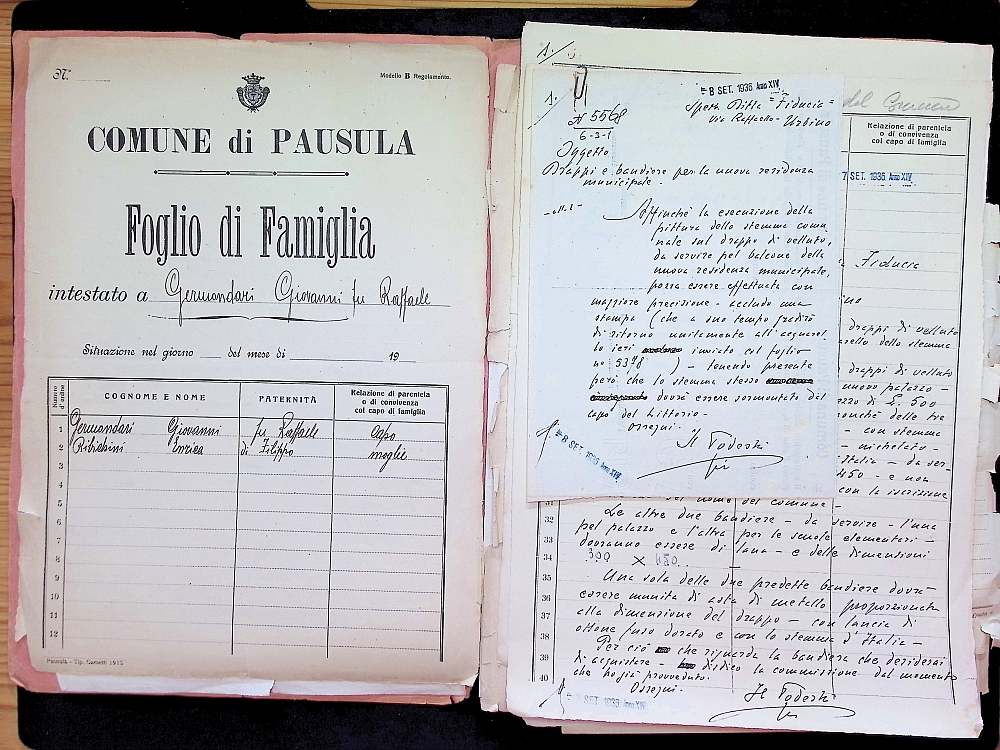 N.°
Modello B Regolamento.
COMUNE di PAUSULA
Foglio di Famiglia
intestato a Germondari Giovanni fu Raffaele
Situazione nel giorno del mese di 19
Numero d'ordine
COGNOME E NOME
PATERNITÀ
Relazione di parentela
o di convivenza
col capo di famiglia
1 Germondari Giovanni fu Raffaele capo
2 Ribichini Enrica di Filippo moglie
3
4
5
6
7
8
9
10
11
12
Pausula - Tip. Cassetti 1915
1.
- 8 SET. 1936 Anno XIV
Spett. Ditta "Fiducia"
via Raffaello - Urbino
N 5568
6-3-1
Oggetto
Drappi e bandiere per la nuova residenza
municipale.
Affinchè la esecuzione della
pittura dello stemma comu
nale sul drappo di velluto,
da servire pel balcone della
nuova residenza municipale,
possa essere effettuata con
maggiore precisione - accludo una
stampa (che a suo tempo gradirò
di ritorno unitamente all'acquarel
lo ieri inviato col foglio
n° 5378 ) - tenendo presente
però che lo stemma stesso
dovrà essere sormontato dal
capo del Littorio -
Ossequi.
Il Podestà
- 8 SET. 1936 Anno XIV
1.
del Comune
Relazione di parentela
o di convivenza
col capo di famiglia
7 SET. 1936 Anno XIV
Fiducia
drappi di velluto
dello stemma
drappi di velluto
nuovo palazzo -
di £. 500
delle tre
- con stemma
- nichelato -
d'Italia - da ser-
450 - e non
con la iscrizione
del nome del comune -
32
Le altre due bandiere - da servire - l'una
33
pel palazzo e l'altra per le scuole elementari -
dovranno essere di lana - e delle dimensioni
34
300 X
35
Una sola delle due predette bandiere dovrà
36
essere munita di asta di metallo proporzionata
37
alla dimensione del drappo - con lancia di
ottone fuso dorato e con lo stemma d'Italia -
38
Per ciò che riguarda la bandiera che desiderai
39
di acquistare - disdico la commissione dal momento
che ho già provveduto.
40
Ossequi.
Il Podestà
- 8 SET. 1936 Anno XIV